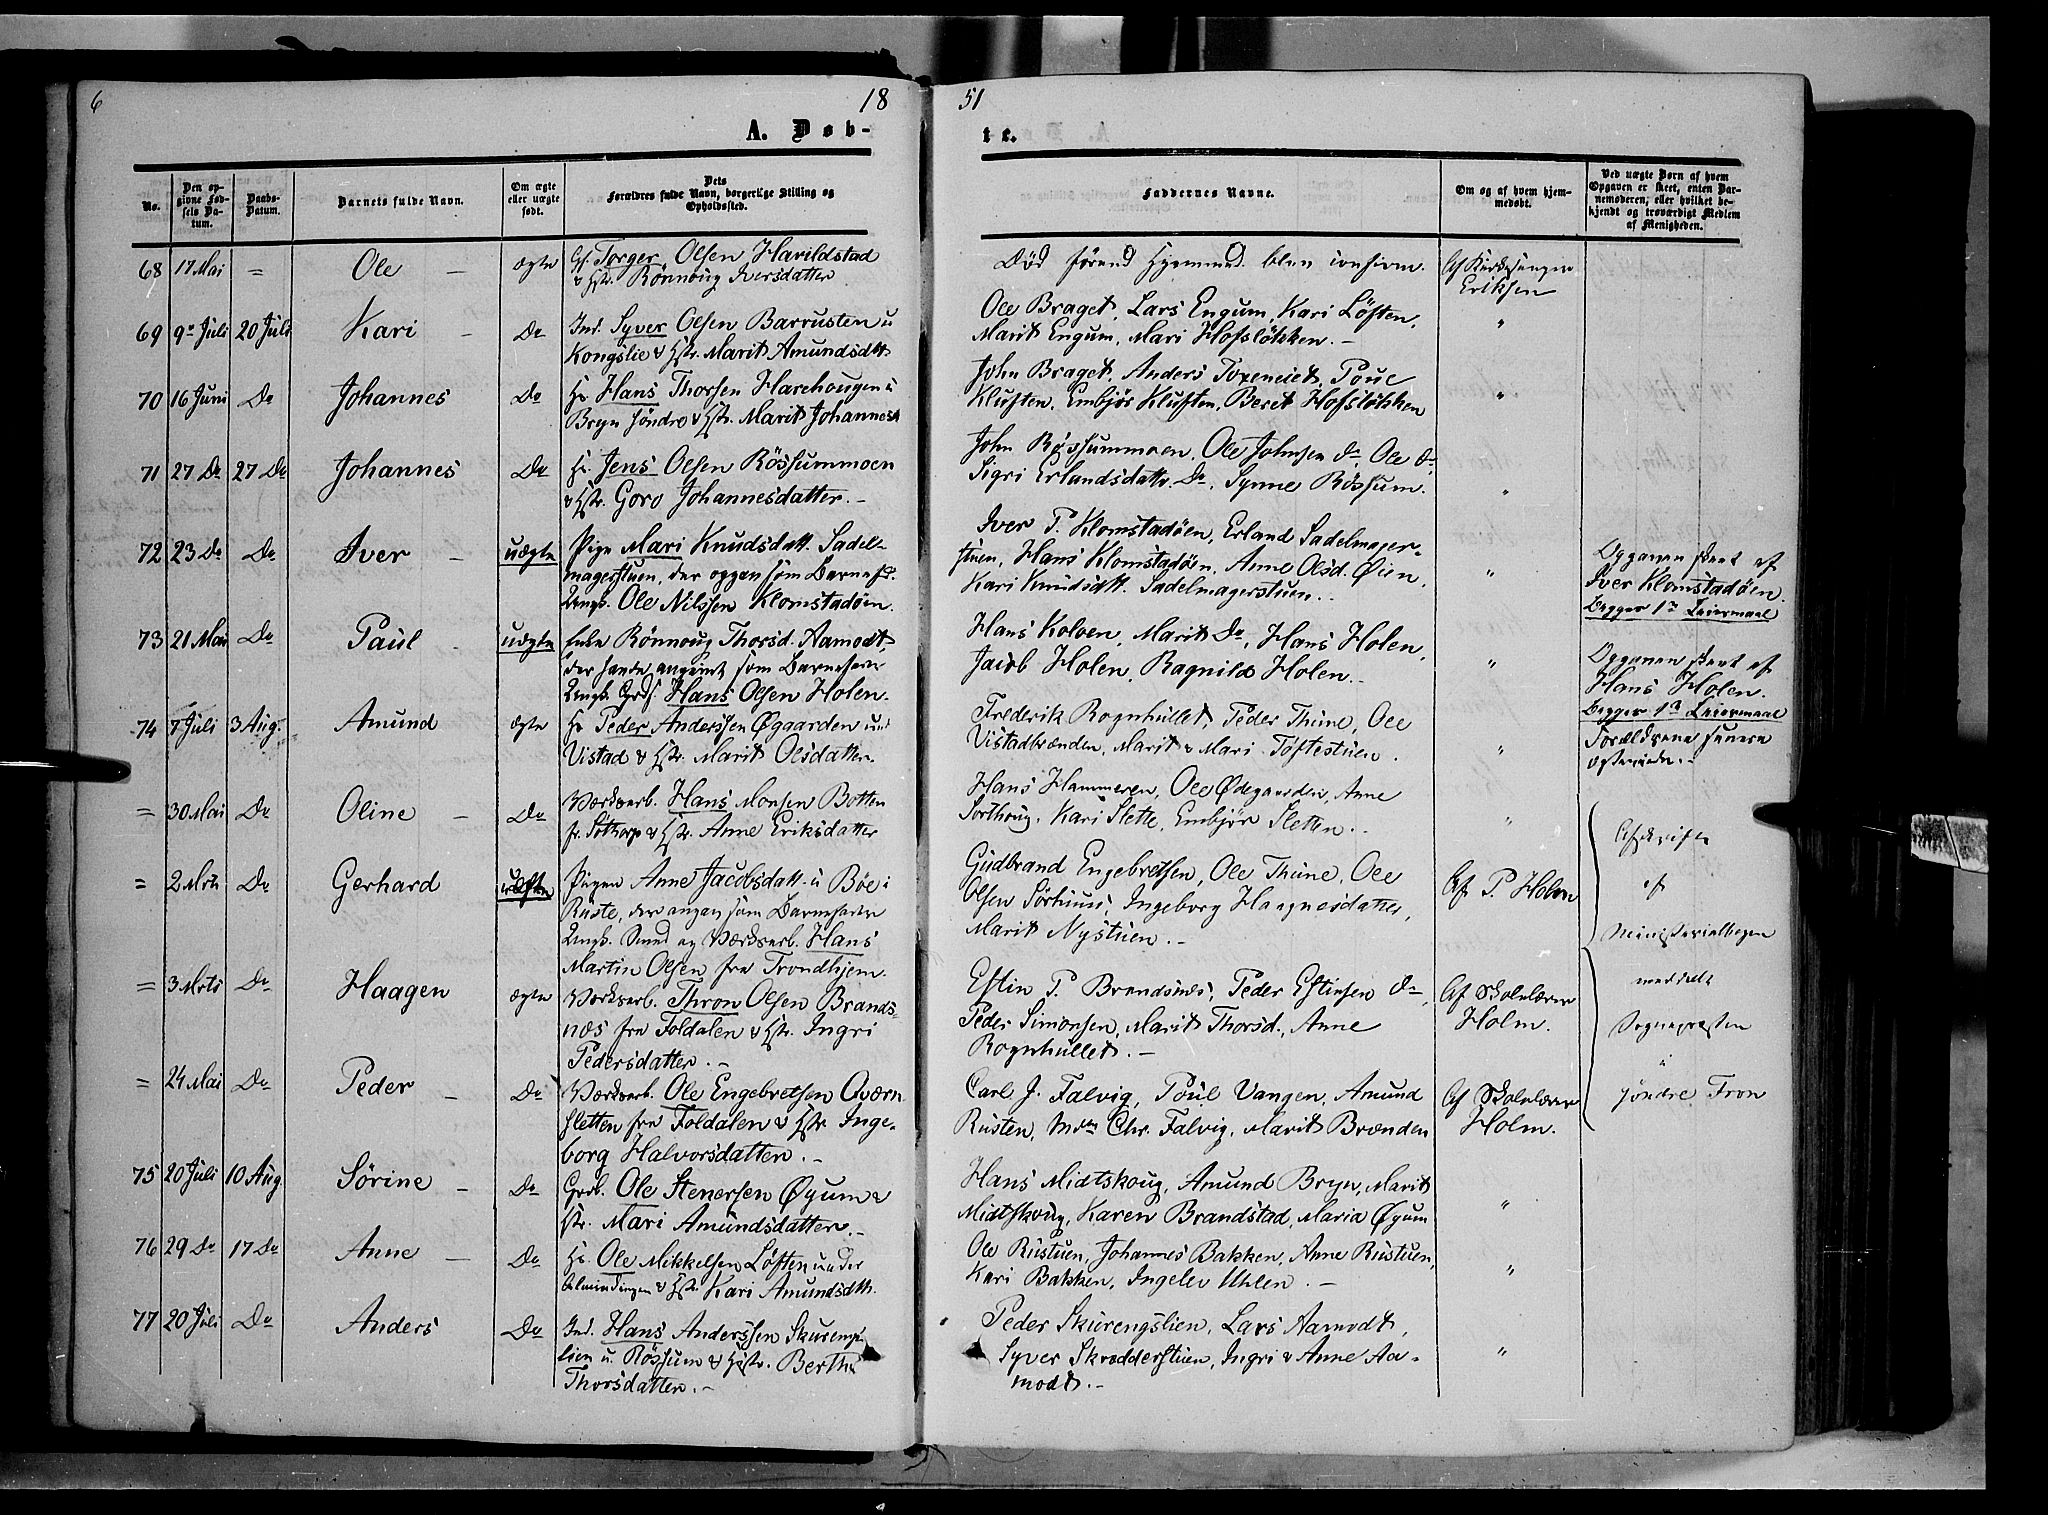 6
18
51
A. Døb-
te.
No.
Den op-
givne Fød-
sels Da-
tum.
Daabs-
Datum.
Barnets fulde Navn.
Om ægte
eller uægte
født.
Dets
Forældres fulde Navn, borgerlige Stilling og
Opholdssted.
Faddernes Navne.
Om og af hvem hjem-
medøbt.
Ved uægte Børn af hvem
Opgaven er skeet, enten Bar-
nemoderen, eller hvilket be-
kjendt og troværdigt Medlem
af Menigheden.
68 17 Mai = Ole – ægte Torger Olsen Harildstad
& Hstr. Rønnoug Iversdatter
Død førend Hjemmed. blev
Af Kirkesanger
Eriksen
69 9de Juli 20 Juli Kari – Do Ind. Syver Olsen Barrusten u
Kongslie & Hstr. Marit Amundsdtt
Ole Braget, Lars Engum, Kari Løften,
Marit Engum, Mari Hofsløkken. –
"
70 16 Juni Do Johannes Do Hs Hans Thorsen Harehougen u
Bryn søndre & Hstr. Marit Johannesd
John Braget, Anders Toxeneiet, Poul
Kluften, Embjør Kluften, Beret Hofsløkken
"
71 27 Do 27 Do Johannes Do Hs. Jens Olsen Røssummoen
& Hstr. Goro Johannesdatter. –
John Røssummoen, Ole Johnsen do, Ole do
Sigri Erlandsdattr. Do, Synne Røssum.
"
72 23 Do Do Iver – uægte Pige Mari Knudsdatt. Sadel-
magerstuen, der opgav som Barnefd.
Ungk. Ole Nilssen Klomstadøen.
Iver P. Klomstadøen, Erland Sadelmager-
stuen, Hans Klomstadøen, Anne Olsd. Øien,
Kari Knudsdtt. Sadelmagerstuen.
"
Opgaven skeet af
Iver Klomstadøen.
Begges 1ste Leiermaal
73 21 Mai Do Paul – uægte Enke Rønnoug Thorsd. Aamodt,
der havde angivet som Barnefader
Ungk. Grds. Hans Olsen Holen.
Hans Kolven, Marit Do, Hans Holen,
Jacob Holen, Ragnild Holen.
"
Opgaven skeet af
Hans Holen.
Begges 1ste Leiermaal
Forældrene senere
ægteviede. –
74 7 Juli 3 Aug. Amund ægte Hs Peder Anderssen Øgaarden und
Vistad & Hstr. Marit Olsdatter.
Frederik Rognhullet, Peder Thune, Ole
Vistadbrænden, Marit & Mari Toftestuen.
"
= 30 Mai Do Oline – Do Værksarb. Hans Monsen Botten
fr. Søthorp & Hstr. Anne Eriksdatter
Hans Hammeren, Ole Ødegaarden, Anne
Sorthoug, Kari Slette, Embjør Sletten.
"
= 2 Mrts Do Gerhard uægte Pigen Anne Jacobsdatt. u Bøe i
Ruste, der angav som Barnefader
Ungk. Smed og Værksarb. Hans
Martin Olsen fra Trondhjem.
Gudbrand Engebretsen, Ole Thune, Ole
Olsen Sørhuus, Ingeborg Haagnesdatter,
Marit Nystuen. –
Af P. Holm
= 3 Mrts Do Haagen ægte Værksarb. Thron Olsen Brands-
næs fra Foldalen & Hstr. Ingri
Pedersdatter. –
Estin P. Brandsnæs, Peder Estensen do
Peder Simonsen, Marit Thorsd., Anne
Rognhullet. –
Af Skolelærer
Holm.
= 24 Mai Do Peder – Do Værksarb. Ole Engebretsen Qværn
sletten fra Foldalen & Hstr. Inge-
borg Halvorsdatter. –
Carl J. Falvig, Poul Vangen, Amund
Rusten, Mdm Chr. Falvig, Marit Brænden
Af Skolelærer
Holm.
Afskrift
af
Ministerialbogen
meddelt
Sognepræsten
i
Søndre Fron
75 20 Juli 10 Aug. Sørine – Do Grdb. Ole Stenersen Øyum &
Hstr. Mari Amundsdatter. –
Hans Midtskoug, Amund Bryn, Marit
Midtskoug, Karen Brandstad, Maria Øyum
"
76 29 Do 17 Do Anne – Do Hs. Ole Mikkelsen Løften under
Almindingen & Hstr. Kari Amundsdtt.
Ole Rustuen, Johannes Bakken, Anne Rustuen,
Kari Bakken, Ingelev Uhlen. –
"
77 20 Juli Do Anders Do Ind. Hans Anderssen Skurengs
lien u. Røssum & Hstr. Berthe
Thorsdatter. –
Peder Skurengslien, Lars Aamodt,
Syver Skrædderstuen, Ingri & Anne Aa-
modt. –
"